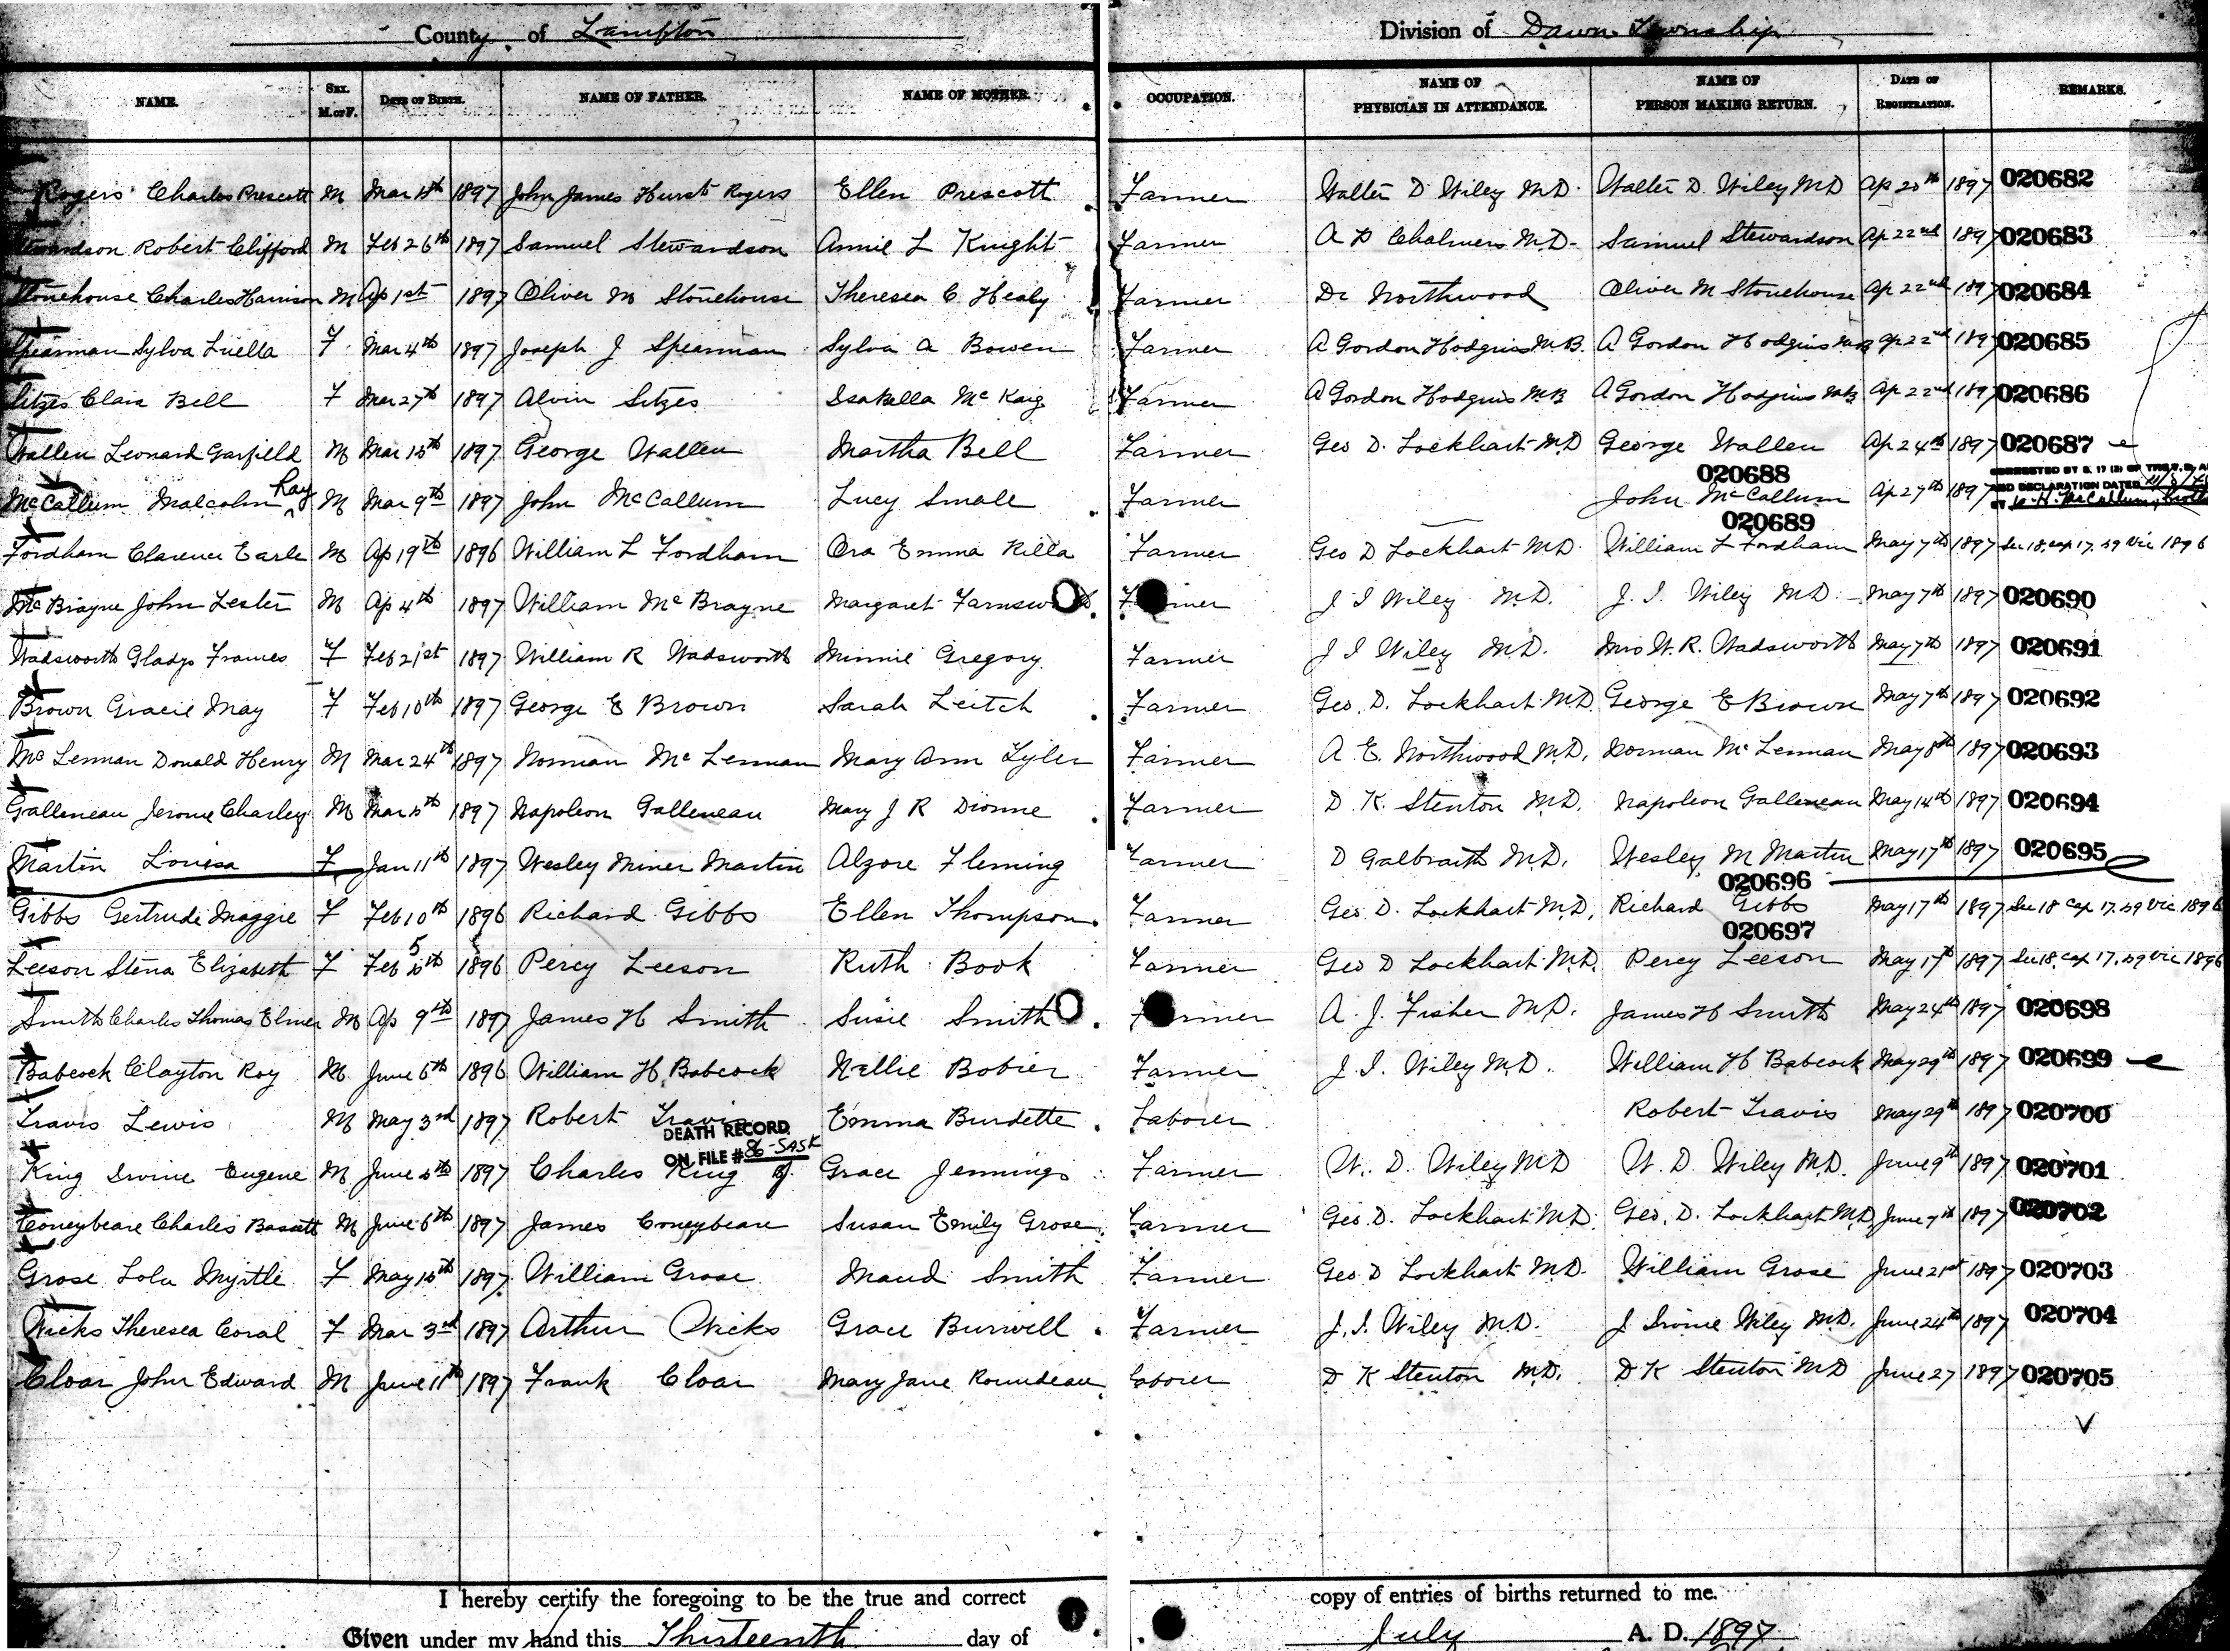 County of Lambton Division of Dawn Township
NAME. SEX. M. OR F. DATE OF BIRTH. NAME OF FATHER. NAME OF MOTHER. OCCUPATION. NAME OF PHYSICIAN IN ATTENDANCE. NAME OF PERSON MAKING RETURN. DATE OF REGISTRATION. REMARKS.
Rogers Charles Prescott M Mar 1897 John James Hurst Rogers Ellen Prescott Farmer Walter D Wiley M.D. Walter D. Wiley MD Ap 20th 1897 020682
Stewardson Robert Clifford M Feb 26th 1897 Samuel Stewardson Annie L Knight Farmer A D Chalmers M.D. Samuel Stewardson Ap 22nd 1897 020683
Stonehouse Charles Harrison M Ap 1st 1897 Oliver M Stonehouse Theresea C Healy Farmer Dr Northwood Oliver M Stonehouse Ap 22nd 1897 020684
Spearman Sylva Luella F Mar 4th 1897 Joseph J Spearman Sylvia A Bowen Farmer A Gordon Hodgins M.B. A Gordon Hodgins MB Ap 22nd 1897 020685
Sitzes Clara Bell F Mar 27th 1897 Alvin Sitzes Isabella McKaig Farmer A Gordon Hodgins MB A Gordon Hodgins MB Ap 22nd 1897 020686
Wallen Leonard Garfield M Mar 1897 George Wallen Martha Bell Farmer Geo D. Lockhart M.D George Wallen Ap 24th 1897 020687
020688
McCallum Malcolm Ray M Mar 9th 1897 John McCallum Lucy Smale Farmer John McCallum Ap 27th 1897 CORRECTED BY S. 17 AND DECLARATION DATED BY McCallum
020689
Fordham Clarence Earle M Ap 19th 1896 William L Fordham Ora Emma Killa Farmer Geo D Lockhart M.D. William L Fordham May 7th 1897 Sec 18. cap 17. 59 Vic 1896
McBrayne John Lester M Ap 4th 1897 William McBrayne Margaret Farnsworth Farmer J I Wiley M.D. J. I. Wiley M.D. May 7th 1897 020690
Wadsworth Gladys Frances F Feb 21st 1897 William R Wadsworth Minnie Gregory Farmer J I Wiley M.D. Mrs W. R. Wadsworth May 7th 1897 020691
Brown Gracie May F Feb 10th 1897 George E Brown Sarah Leitch Farmer Geo. D. Lockhart M.D. George E Brown May 7th 1897 020692
McLennan Donald Henry M Mar 24th 1897 Norman McLennan Mary Ann Tyler Farmer A. E. Northwood M.D. Norman McLennan May 8th 1897 020693
Galleneau Jerome Charley M Mar 1897 Napoleon Galleneau Mary J R Dionne Farmer D. K. Stenton M.D. Napoleon Galleneau May 14th 1897 020694
Martin Louisa F Jan 11th 1897 Wesley Miner Martin Algore Fleming Farmer D Galbraith M.D. Wesley M Martin May 17th 1897 020695
020696
Gibbs Gertrude Maggie F Feb 10th 1896 Richard Gibbs Ellen Thompson Farmer Geo. D. Lockhart M.D. Richard Gibbs May 17th 1897 Sec 18 cap 17. 59 Vic. 1896
020697
Leeson Stena Elizabeth F Feb 5th 1896 Percy Leeson Ruth Book Farmer Geo D Lockhart M.D. Percy Leeson May 17th 1897 Sec 18. cap 17. 59 Vic. 1896
Smith Charles Thomas Elmer M Ap 9th 1897 James H Smith Susie Smith Farmer A. J. Fisher M.D. James H Smith May 24th 1897 020698
Babcock Clayton Roy M June 6th 1896 William H. Babcock Nellie Bobier Farmer J. I. Wiley M.D. William H Babcock May 29th 1897 020699
Travis Lewis M May 3rd 1897 Robert Travis Emma Burdette Laborer Robert Travis May 29th 1897 020700
DEATH RECORD ON FILE # 86-SASK
King Irvine Eugene M June 1897 Charles King Grace Jennings Farmer W. D. Wiley MD W. D. Wiley M.D. June 9th 1897 020701
Coneybeare Charles Bassett M June 6th 1897 James Coneybeare Susan Emily Grose Farmer Geo. D. Lockhart M.D. Geo. D. Lockhart M.D. June 7th 1897 020702
Grose Lola Myrtle F May 1897 William Grose Maud Smith Farmer Geo. D Lockhart M.D. William Grose June 21st 1897 020703
Wicks Theresea Coral F Mar 3rd 1897 Arthur Wicks Grace Burwell Farmer J. I. Wiley M.D. J Irvine Wiley M.D. June 24th 1897 020704
Cloar John Edward M June 11th 1897 Frank Cloar Mary Jane Roundeau Laborer D K Stenton M.D. D K Stenton MD June 27 1897 020705
I hereby certify the foregoing to be the true and correct copy of entries of births returned to me.
Given under my hand this Thirteenth day of July A. D. 1897